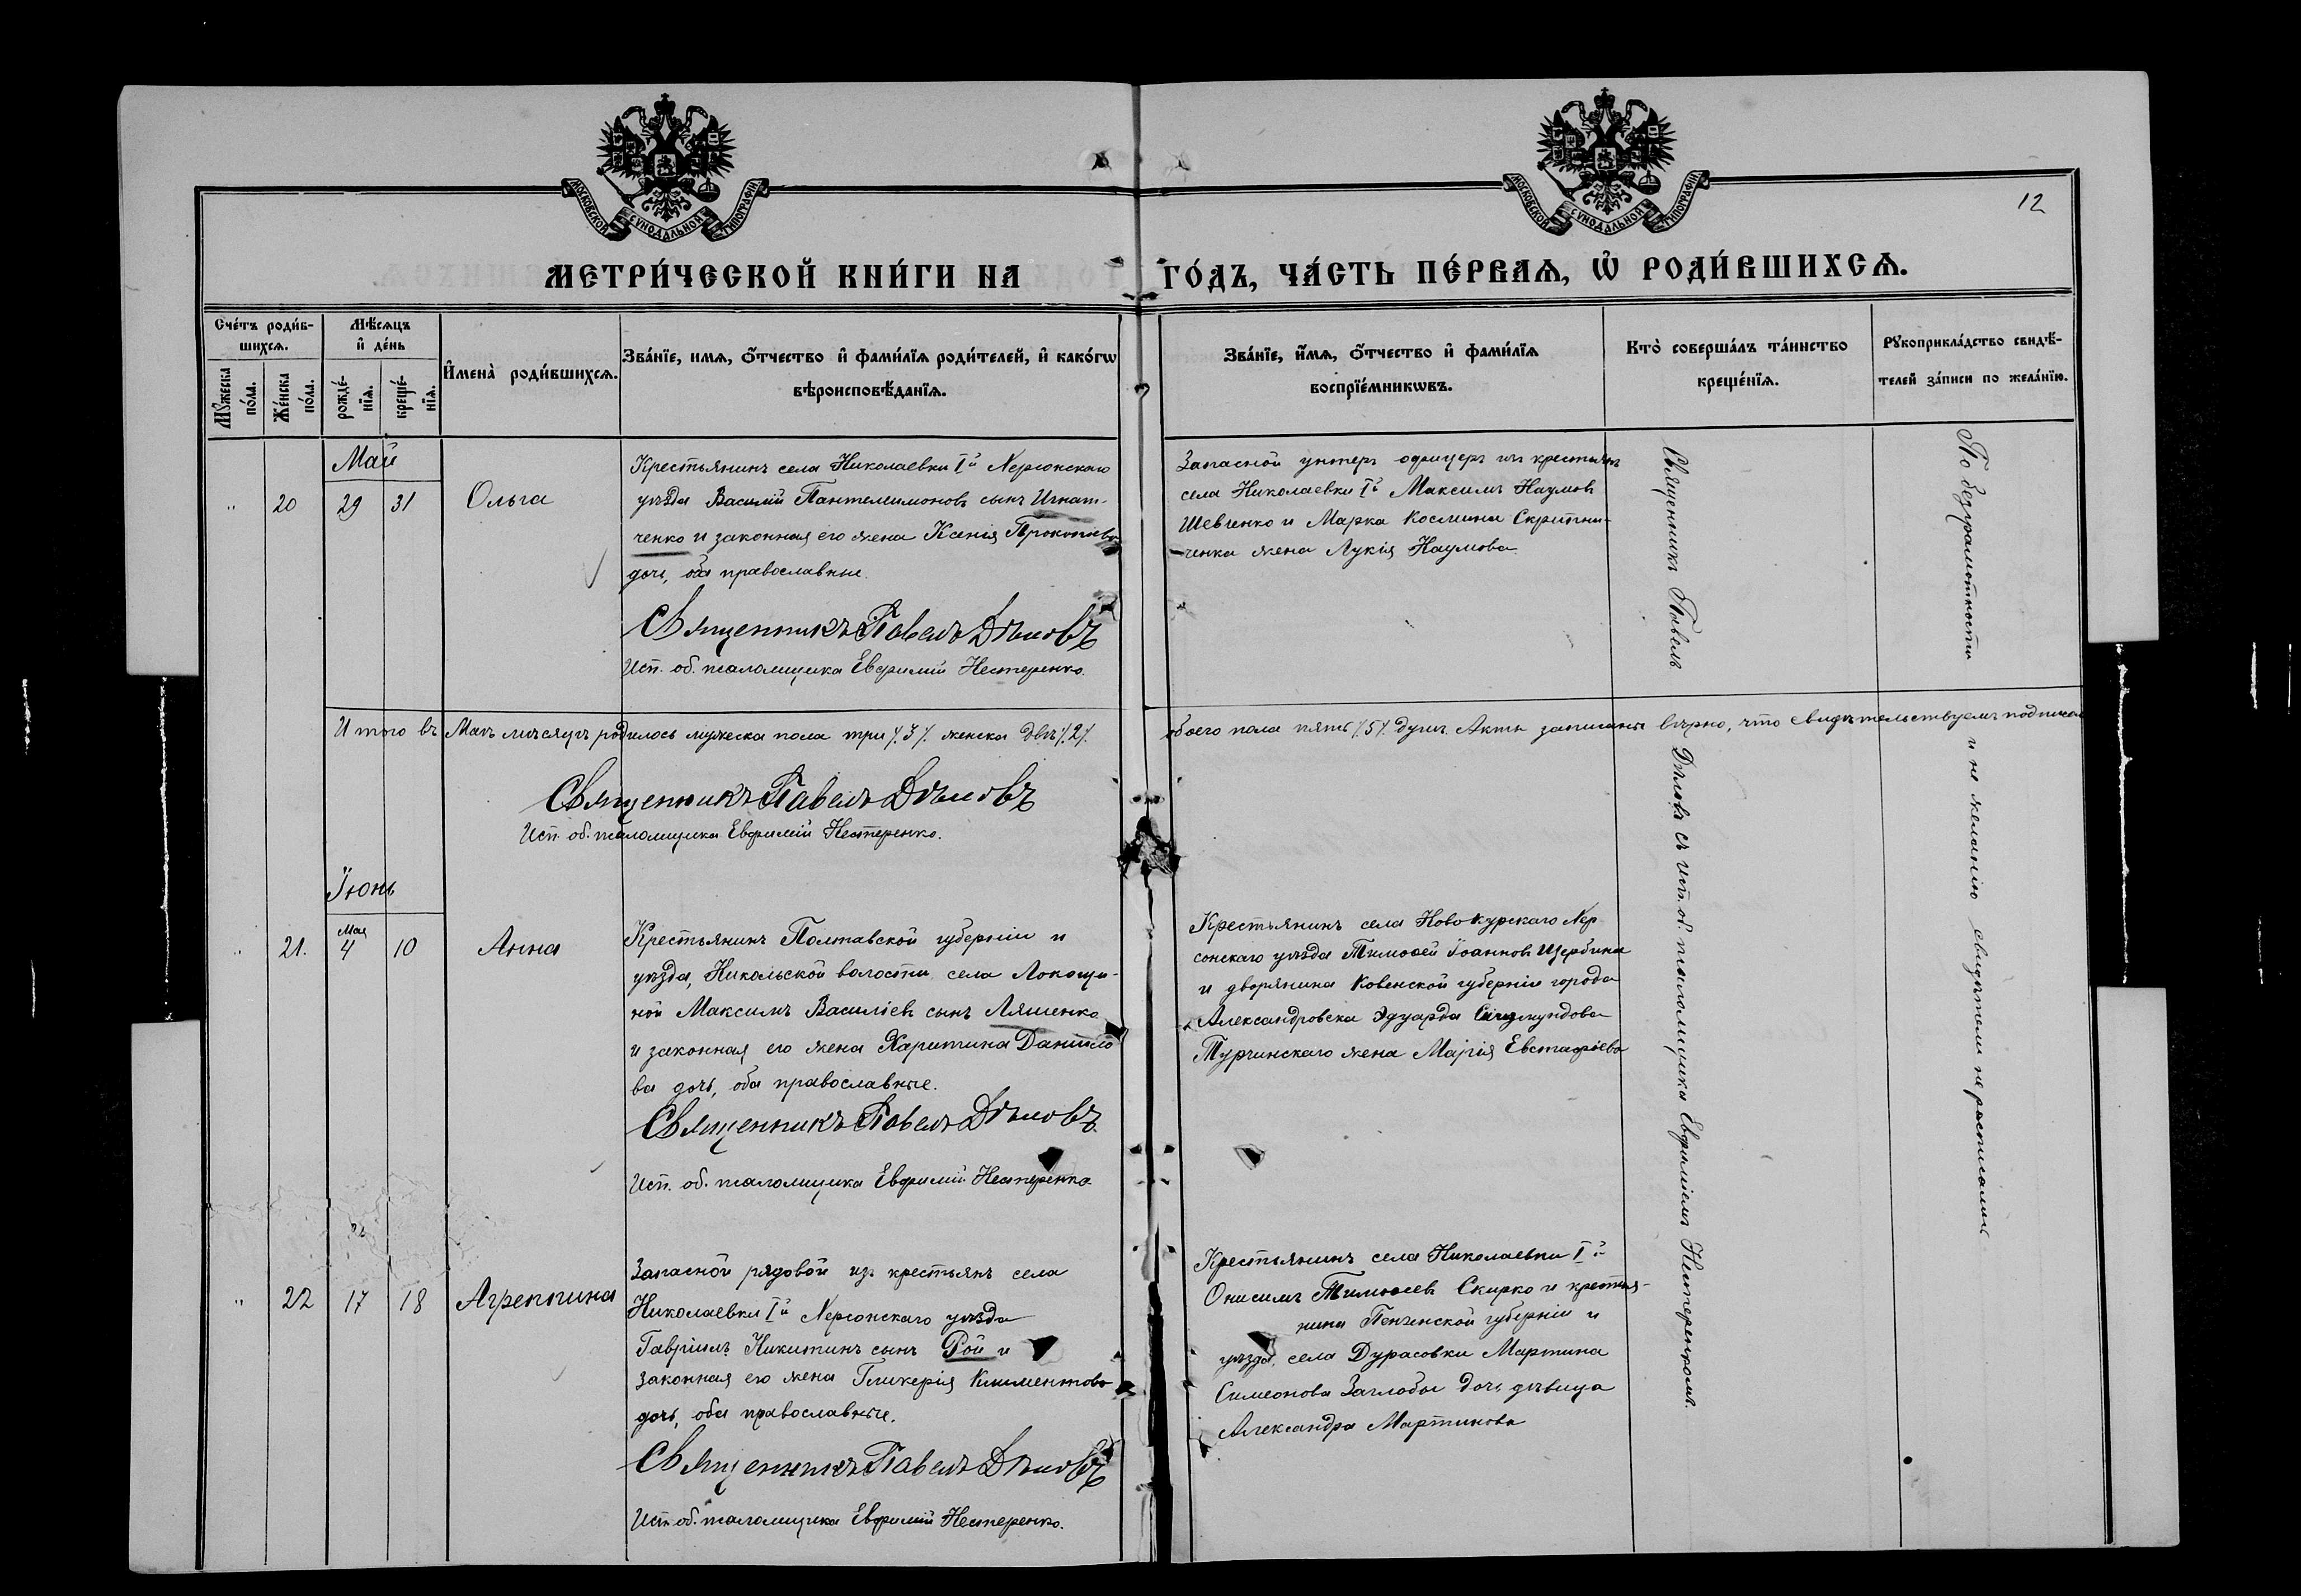 МОСКОВСКОЙ СѴНОДАЛЬНОЙ ТИПОГРАФІИ
МОСКОВСКОЙ СѴНОДАЛЬНОЙ ТИПОГРАФІИ
12
МЕТРИ́ЧЕСКОЙ КНИ́ГИ НА ГО́ДЪ, ЧА́СТЬ ПЕ́РВАѦ, Ѽ РОДИ́ВШИХСѦ.
Сче́тъ роди́в-
шихсѧ.
Мꙋ́жеска по́ла.
Же́нска по́ла.
Мѣ́сѧцъ
и҆ де́нь
рожде́-
нїѧ.
креще́-
нїѧ.
И҆мена̀ роди́вшихсѧ.
Зва́нїе, имѧ, о҆́тчество и҆ фами́лїѧ роди́телей, и҆ како́гѡ
вѣроисповѣ́данїѧ.
Зва́нїе, и҆́мѧ, о҆́тчество и҆ фами́лїѧ
воспрїе́мникѡвъ.
Кто̀ соверша́лъ та́инство
креще́нїѧ.
Рꙋкоприкла́дство свидѣ́-
телей за́писи по жела́нїю.
Май
" 20 29 31 Ольга
Крестьянинъ села Николаевки Iй Херсонскаго
уѣзда Василій Пантелеимоновъ сынъ Игнат-
ченко и законная его жена Ксенія Прокопіева
дочь, оба православные.
Священникъ Павелъ Дѣловъ
Исп. об. псаломщика Евфимій Нестеренко.
Запасной унтеръ офицеръ изъ крестьянъ
села Николаевки Iй Максимъ Наумовъ
Шевченко и Марка Космина Скрипни-
ченка жена Лукія Наумова
Итого въ Маѣ мѣсяцѣ родилось мужеска пола три /.3/. женска двѣ /.2/. обоего пола пять /.5/. душъ. Акты записаны вѣрно, что свидѣтельствуемъ подписью
Священникъ Павелъ Дѣловъ
Исп. об. псаломщика Евфимій Нестеренко.
Іюнь
" 21. Мая 4 10 Анна
Крестьянинъ Полтавской губерніи и
уѣзда, Никольской волости, села Локощи-
ной Максимъ Василіевъ сынъ Ляшенко
и законная его жена Харитина Данило
ва дочь, оба православные.
Священникъ Павелъ Дѣловъ.
Исп. об. псаломщика Евфимій Нестеренко
Крестьянинъ села Новокурскаго Хер
сонскаго уѣзда Тимоѳей Іоанновъ Щербина
и дворянина Ковенской губерніи города
Александровска Эдуарда Сигизмундова
Турчинскаго жена Марія Евстафіева
" 22 17 18 Агреппина
Запасной рядовой изъ крестьянъ села
Николаевки Iй Херсонскаго уѣзда
Гавріилъ Никитинъ сынъ Рой и
законная его жена Гликерія Климентова
дочь, оба православные.
Священникъ Павелъ Дѣловъ
Исп. об. псаломщика Евфимій Нестеренко.
Крестьянинъ села Николаевки Iй
Онисимъ Тимоѳеевъ Скирко и крестья-
нина Пензенской губерніи и
уѣзда, села Дурасовки Мартина
Симеонова Заглобы дочь дѣвица
Александра Мартинова
Священникъ Павелъ Дѣловъ съ исп. об. псаломщика Евфиміемъ Нестеренкомъ.
По безграмотности и не желанію свидѣтели не расписались